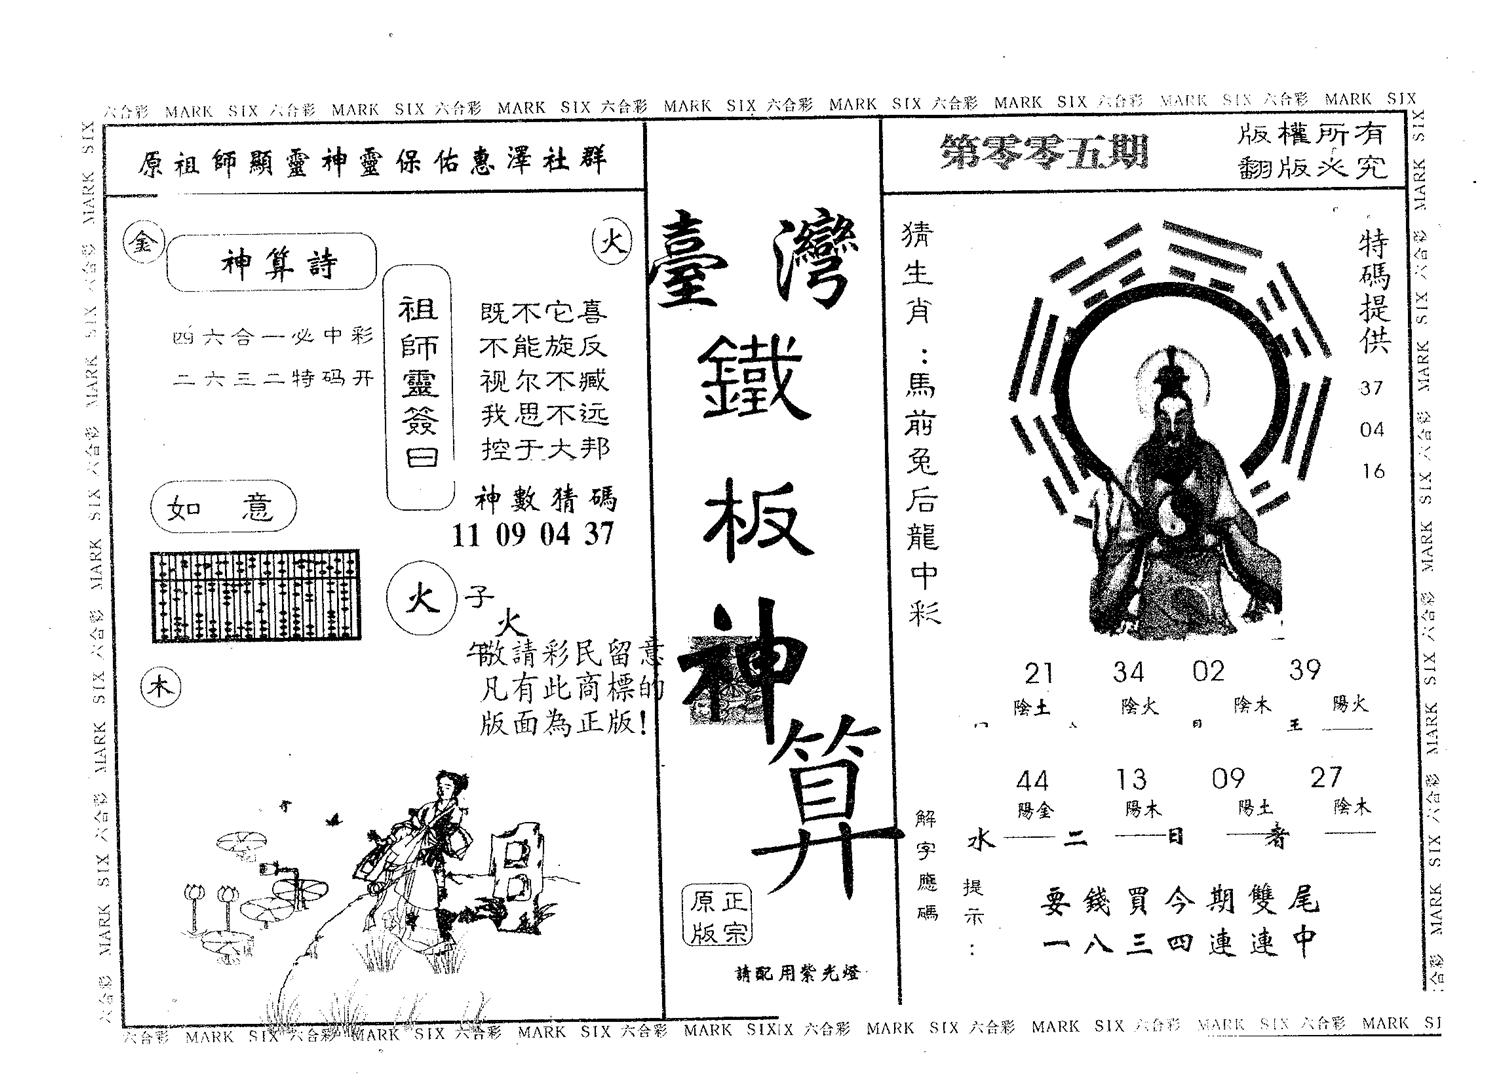 六合彩 MARK SIX 六合彩 MARK SIX 六合彩 MARK SIX 六合彩 MARK SIX 六合彩 MARK SIX 六合彩 MARK SIX 六合彩 MARK SIX 六合彩 MARK SIX
原祖師顯靈神靈保佑惠澤社群
金
神算詩
火
四六合一必中彩
二六三二特码开
祖師靈簽曰
既不它喜
不能旋反
视尔不臧
我思不远
控于大邦
神數猜碼
11 09 04 37
如意
火
子
火
午
敬請彩民留意
凡有此商標的
版面為正版!
木
臺灣
鐵
板
神
算
正宗
原版
請配用紫光燈
第零零五期
版權所有
翻版必究
猜生肖:馬前兔后龍中彩
特碼提供
37
04
16
21 34 02 39
陰土 陰火 陰木 陽火
44 13 09 27
陽金 陽木 陽土 陰木
解字應碼
水 二 日 者
提示:
要錢買今期雙尾
一八三四連連中
六合彩 MARK SIX 六合彩 MARK SIX 六合彩 MARK SIX 六合彩 MARK SIX 六合彩 MARK SIX 六合彩 MARK SIX 六合彩 MARK SIX 六合彩 MARK SI